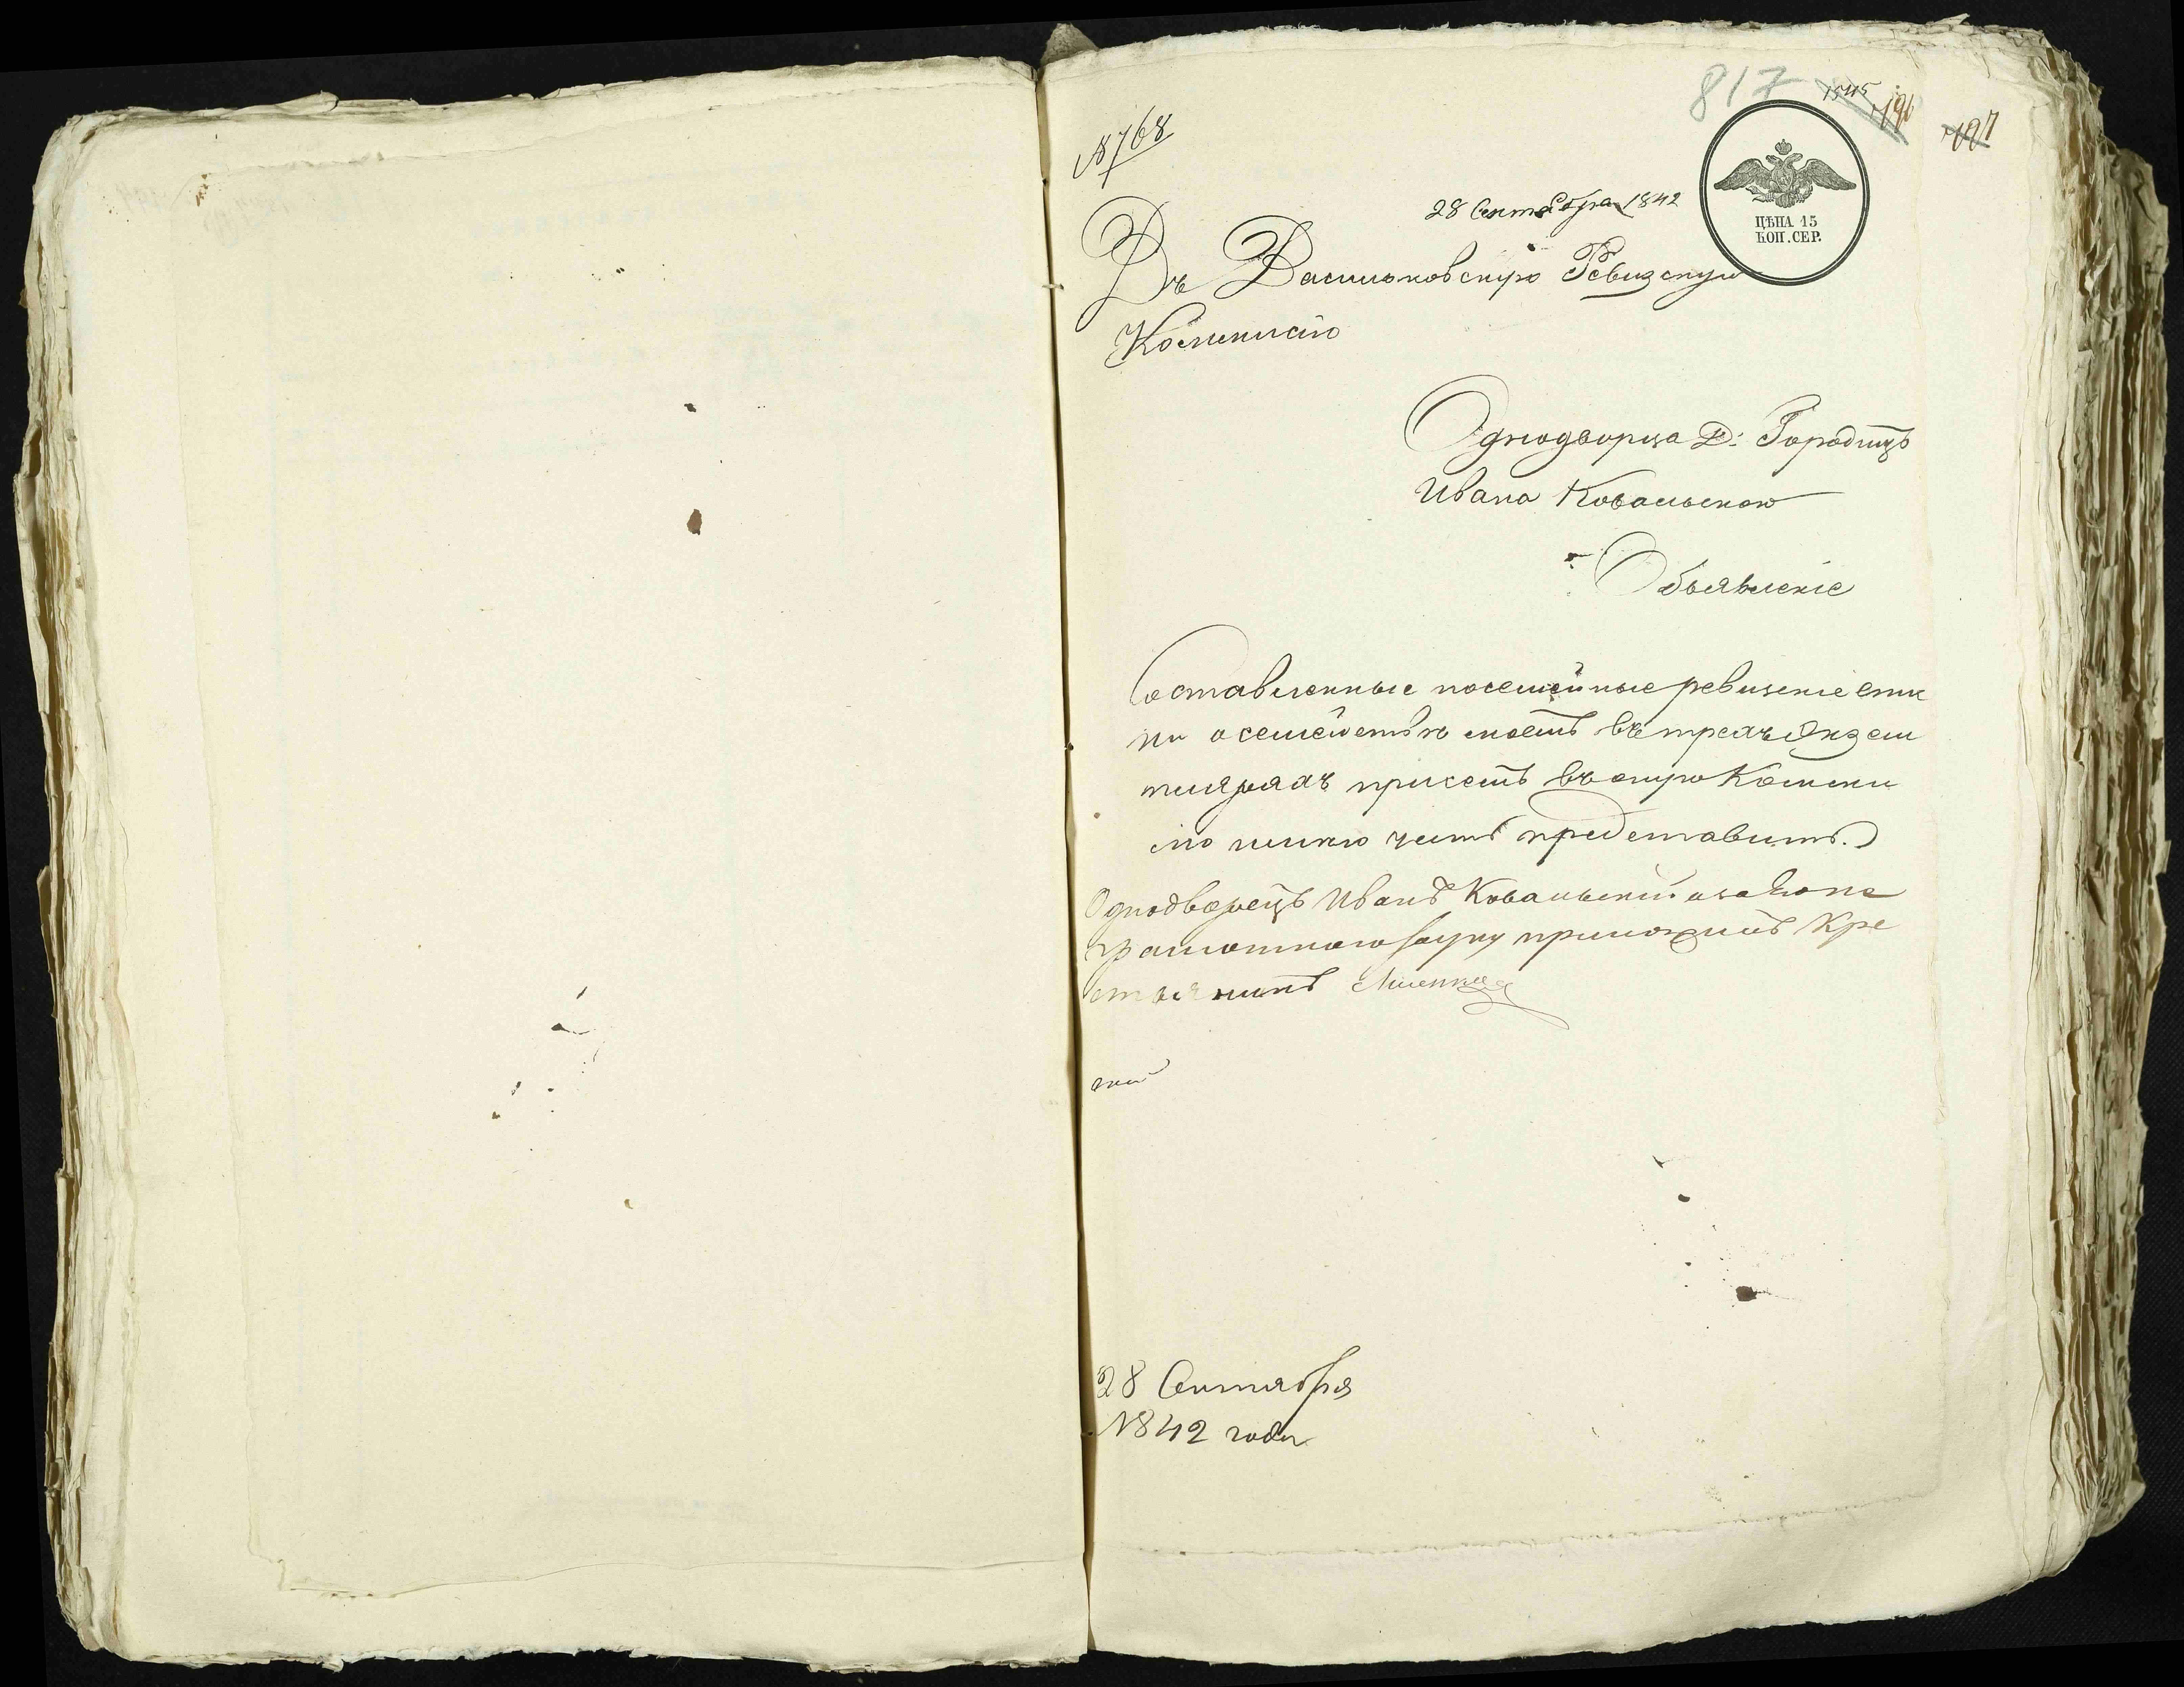 817
1545
196
197
№768
28 Сентября 1842
ЦѢНА 15
КОП. СЕР.
Въ Васильковскую Ревизскую
Коммисію
Однодворца Д: Городищъ
Ивана Ковальскаго
Объявленіе
Составленные посемейные ревизскіе ска
ки о семействѣ моемъ въ трехъ экзем
плярахъ присемъ въ оную Комми
сію имѣю честь представить.
Однодворецъ Иванъ Ковальскій а за него не
грамотнаго руку приложилъ Кре
стьянинъ
28 Сентября
1842 года